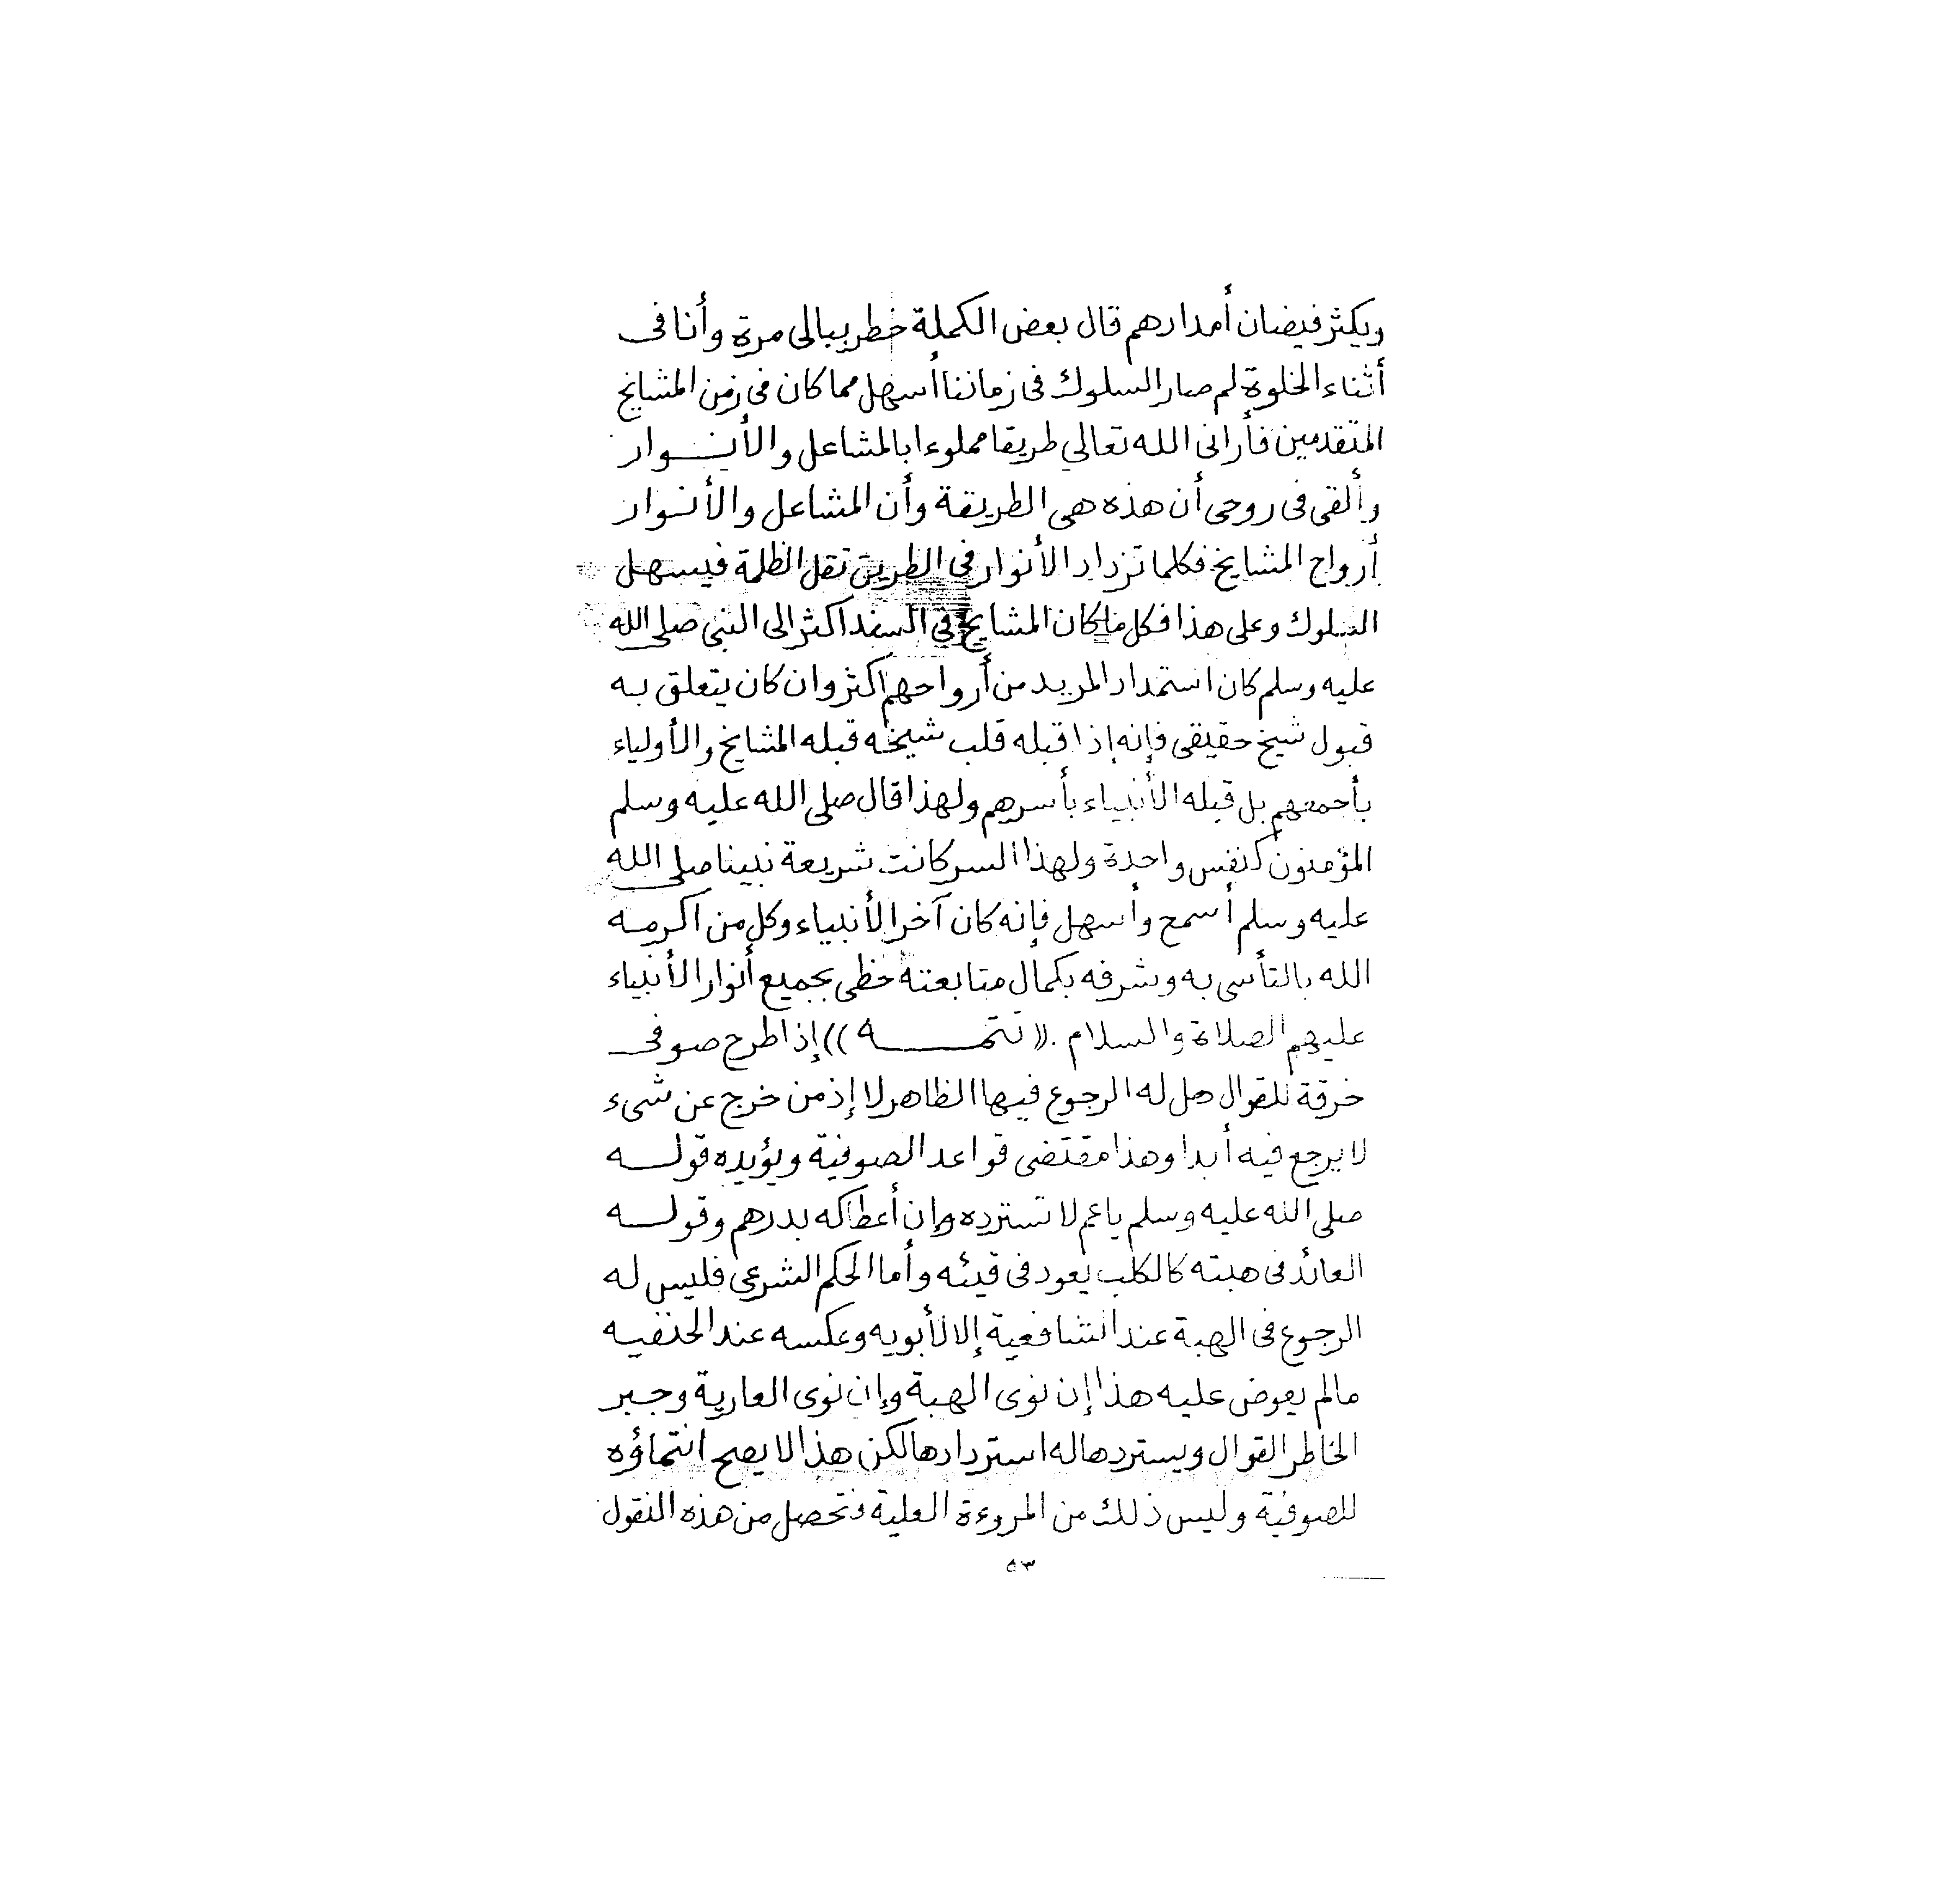 ويكثر فيضان أمدادهم قال بعض الكملة خطر ببالى مرة وأنا فى
أثناء الخلوة لم صار السلوك فى زماننا أسهل مما كان فى زمن المشايخ
المتقدمين فأرانى الله تعالي طريقا مملوءا بالمشاعل والأنــوار
وألقى فى روحى أن هذه هى الطريقة وأن المشاعل والأنوار
أرواح المشايخ فكلما تزداد الأنوار فى الطريق تقل الظلمة فيسهل
السلوك وعلى هذا فكل ما كان المشايخ فى السند اكثر الى النبى صلى الله
عليه وسلم كان استمداد المريد من أرواحهم اكثر وان كان يتعلق به
قبول شيخ حقيقى فإنه إذا قبله قلب شيخه قبله المشايخ والأولياء
بأجمعهم بل قبله الأنبياء بأسرهم ولهذا قال صلى الله عليه وسلم
المؤمنون كنفس واحدة ولهذا السر كانت شريعة نبينا صلى الله
عليه وسلم أسمح وأسهل فإنه كان آخر الأنبياء وكل من اكرمه
الله بالتأسى به وشرفه بكمال متابعته حظى بجميع أنوار الأنبياء
عليهم الصلاة والسلام . (( تتمــــه )) إذا طرح صوفى
خرقة للقوال هل له الرجوع فيها الظاهر لا إذ من خرج عن شىء
لا يرجع فيه أبدا وهذا مقتضى قواعد الصوفية ويؤيده قولــه
صلى الله عليه وسلم ياعم لا تسترده وإن أعطاكه بدرهم وقولــه
العائد فى هبته كالكلب يعود فى قيئه وأما الحكم الشرعى فليس له
الرجوع فى الهبة عند الشافعية إلا لأبويه وعكسه عند الحنفيه
مالم يعوض عليه هذا إن نوى الهبة وإن نوى العارية وجبر
الخاطر القوال ويستردها له استردادها لكن هذا لا يصح انتماؤه
للصوفية وليس ذلك من المروءة العلية فتحصل من هذه النقول
٥٣